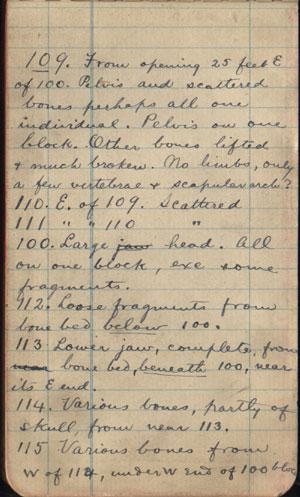 109. From opening 25 feet E
of 100. Pelvis and scattered
bones perhaps all one
individual. Pelvis on one
block. Other bones lifted
& much broken. No limbs, only
a few vertebrae & scapular arch?
110. E. of 109. Scattered
111 " " 110 "
100. Large jaw head. All
on one block, exc some
fragments.
112. Loose fragments from
bone bed below 100.
113 Lower jaw, complete, from
near bone bed, beneath 100, near
its E end.
114. Various bones, partly of
skull, from near 113.
115 Various bones from
W of 114, under W end of 100 bloc